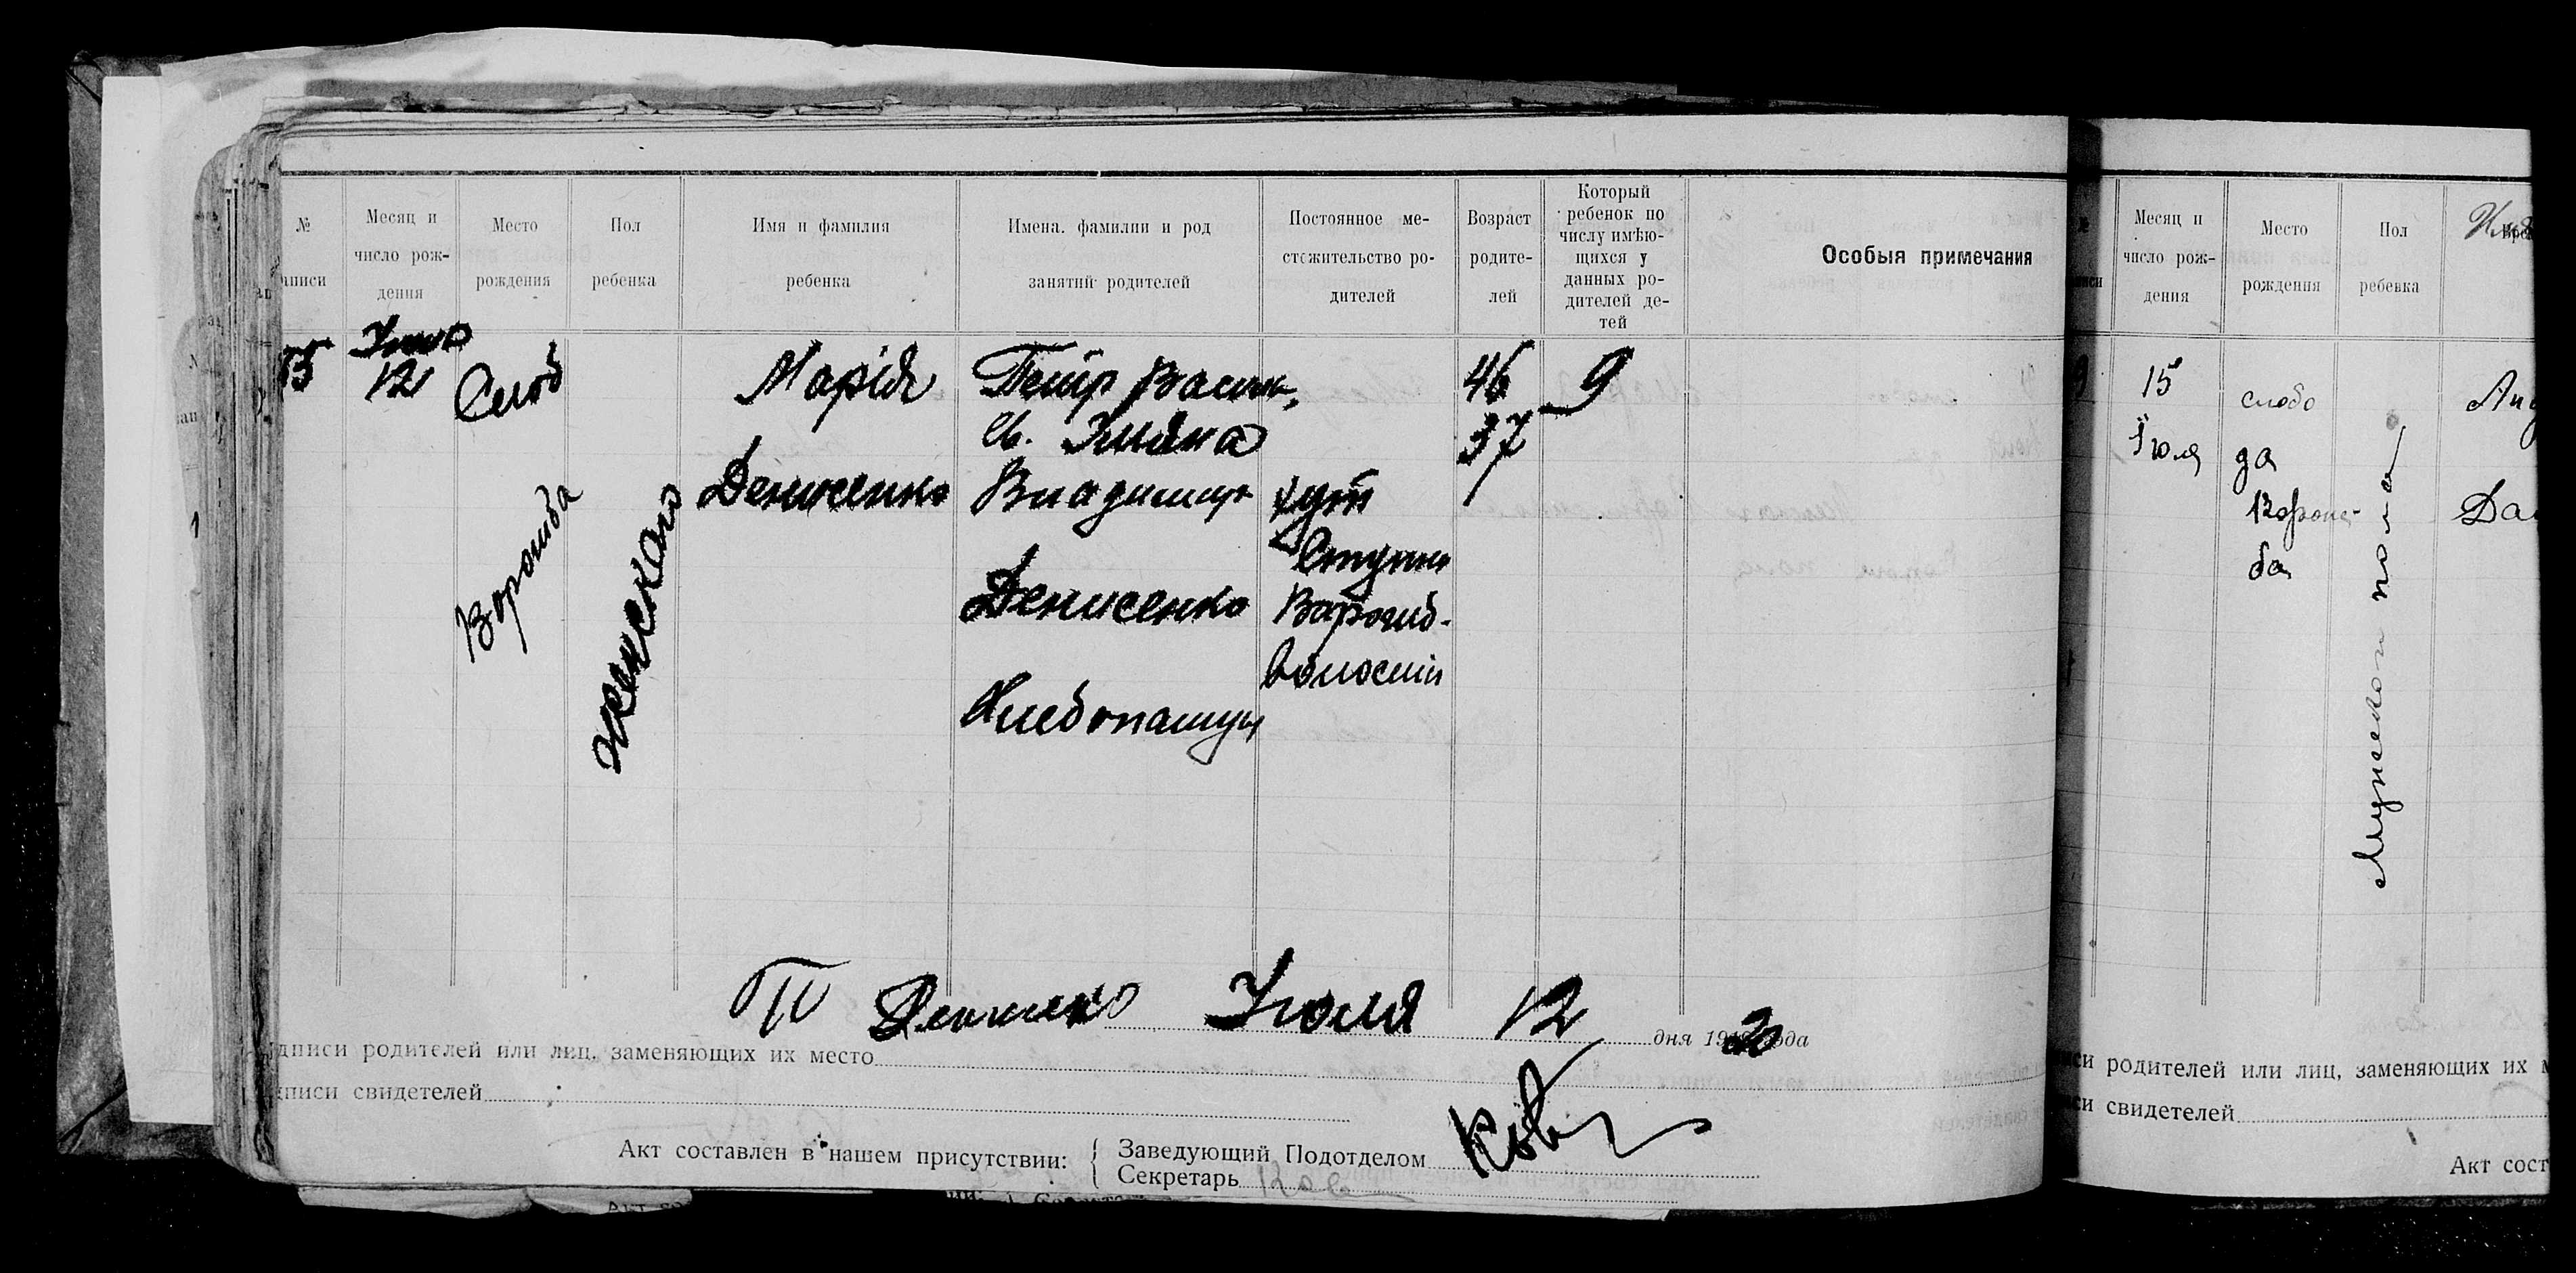 № аписи
Месяц и число рождения
Место рождения
Пол ребенка
Имя и фамилия ребенка
Имена. фамилии и род занятий родителей
Постоянное местожительство родителей
Возраст родителей
Который ребенок по числу имѣющихся у данных родителей детей
Особыя примечания
12
Слоб
Ворожба
женского
Марія
Денисенко
Петр Васил.
Владимир
Денисенко
Хлебопашцы
хут
Ворожб.
волости
46
37
9
Июля 12 дня 19 20 года
дписи родителей или лиц, заменяющих их место
писи свидетелей
Акт составлен в нашем присутствии:
Заведующий Подотделом
Секретарь
Месяц и число рождения
Место рождения
Пол ребенка
15
Іюля
слобо
да
Ворож-
ба
Мужескаго пола
си родителей или лиц, заменяющих их м
си свидетелей
Акт сост